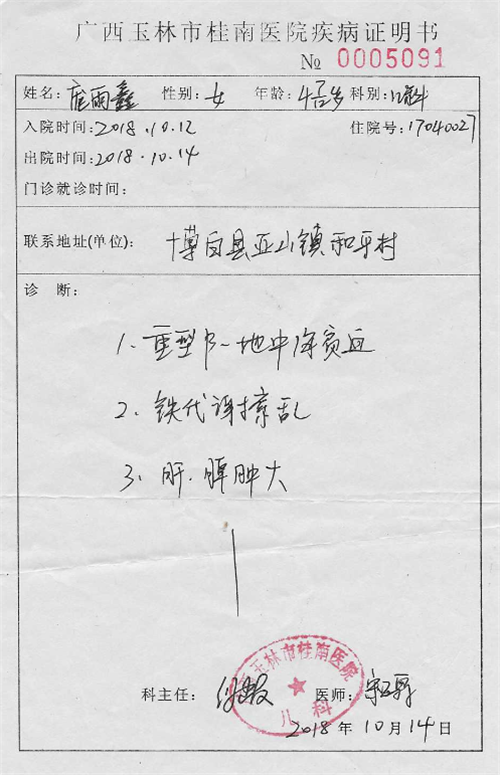 广西玉林市桂南医院疾病证明书
№ 0005091
姓名: 庞雨鑫 性别: 女 年龄: 4 岁 科别: 儿科
入院时间: 2018.10.12 住院号: 17040027
出院时间: 2018.10.14
门诊就诊时间:
联系地址(单位): 博白县亚山镇和平村
诊 断:
1. 重型β-地中海贫血
2. 铁代谢紊乱
3. 肝.脾肿大
玉林市桂南医院
儿科
科主任: 医师:
2018 年 10 月 14 日